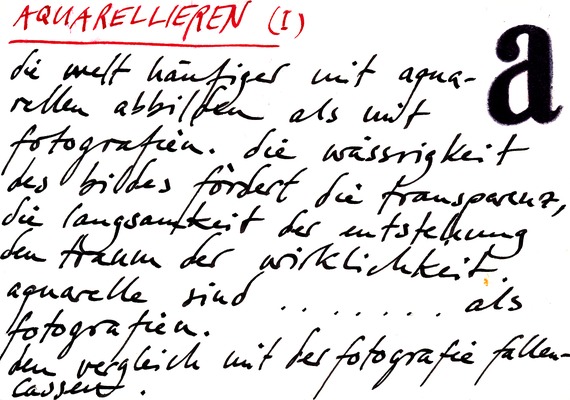 AQUARELLIEREN (I)
a
die welt häufiger mit aqua-
rellen abbilden als mit
fotografien. die wässrigkeit
des bildes fördert die transparenz,
die langsamkeit der entstehung
den traum der wirklichkeit.
aquarelle sind . . . . . . . . als
fotografien.
den vergleich mit der fotografie fallen-
lassen.